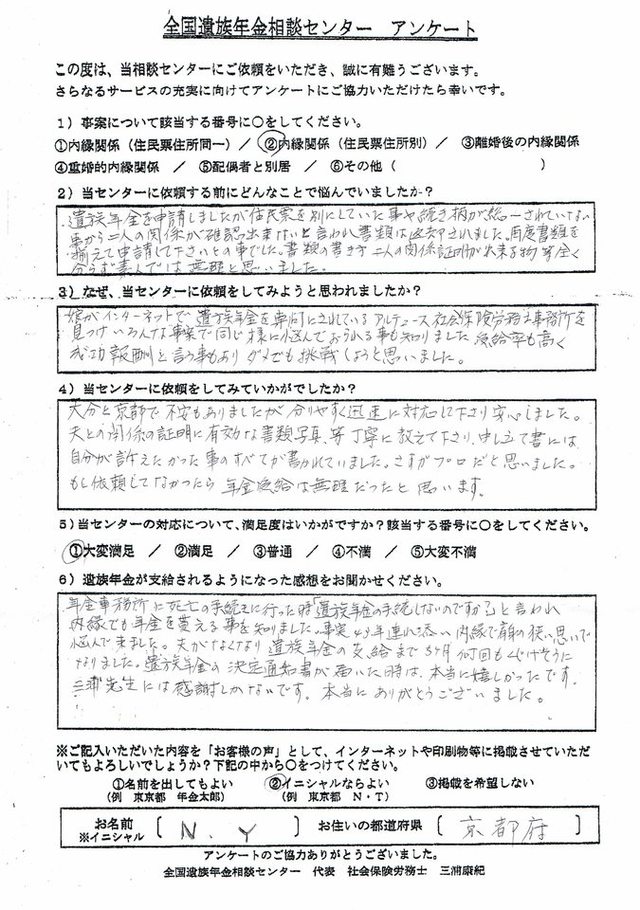 全国遺族年金相談センター アンケート
この度は、当相談センターにご依頼をいただき、誠に有難うございます。
さらなるサービスの充実に向けてアンケートにご協力いただけたら幸いです。
1）事案について該当する番号に○をしてください。
①内縁関係（住民票住所同一）／ ②内縁関係（住民票住所別）／ ③離婚後の内縁関係
④重婚的内縁関係 ／ ⑤配偶者と別居 ／ ⑥その他（ ）
2）当センターに依頼する前にどんなことで悩んでいましたか？
遺族年金を申請しましたが住民票を別にしていた事や続き柄が統一されていない
事から二人の関係が確認出来ないと言われ書類は返却されました。再度書類を
揃えて申請して下さいとの事でした。書類の書き方 二人の関係証明が出来る物 等全く
分らず素人では無理と思いました。
3）なぜ、当センターに依頼をしてみようと思われましたか？
嫁がインターネットで 遺族年金を専門にされている アルテュース社会保険労務士事務所を
見つけ いろんな事案で同じ様に悩んでおられる事も知りました 受給率も高く
成功報酬と言う事もあり ダメでも挑戦しようと思いました。
4）当センターに依頼をしてみていかがでしたか？
大分と京都で不安もありましたが 分りやすく迅速に対応して下さり安心しました。
夫との関係の証明に有効な書類写真、等丁寧に教えて下さり、申し立て書には
自分が訴えたかった事のすべてが書かれていました。さすがプロだと思いました。
もし依頼してなかったら 年金受給は無理だったと思います。
5）当センターの対応について、満足度はいかがですか？該当する番号に○をしてください。
①大変満足 ／ ②満足 ／ ③普通 ／ ④不満 ／ ⑤大変不満
6）遺族年金が支給されるようになった感想をお聞かせください。
年金事務所に死亡の手続きに行った時「遺族年金の手続しないのですか」と言われ
内縁でも年金を貰える事を知りました。事実 42年連れ添い 内縁で肩の狭い思いで
悩んで来ました。夫がなくなり 遺族年金の支給まで 5ヶ月 何回もくじけそうに
なりました。遺族年金の決定通知書が届いた時は、本当に嬉しかったです。
三浦先生には感謝しかないです。本当にありがとうございました。
※ご記入いただいた内容を「お客様の声」として、インターネットや印刷物等に掲載させていただ
いてもよろしいでしょうか？下記の中から○をつけてください。
①名前を出してもよい ②イニシャルならよい ③掲載を希望しない
（例 東京都 年金太郎） （例 東京都 N・T）
お名前 〔 N. Y 〕 お住いの都道府県 〔 京都府 〕
※イニシャル
アンケートのご協力ありがとうございました。
全国遺族年金相談センター 代表 社会保険労務士 三浦康紀